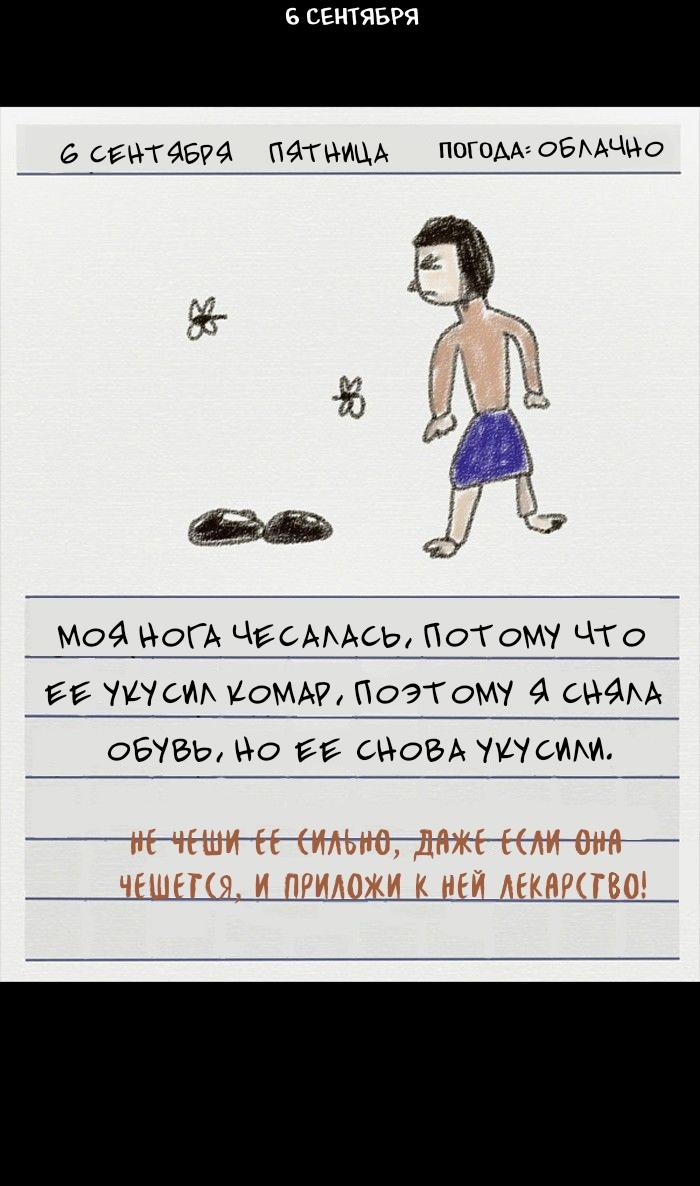 6 СЕНТЯБРЯ
6 СЕНТЯБРЯ ПЯТНИЦА ПОГОДА: ОБЛАЧНО
МОЯ НОГА ЧЕСАЛАСЬ, ПОТОМУ ЧТО
ЕЕ УКУСИЛ КОМАР, ПОЭТОМУ Я СНЯЛА
ОБУВЬ, НО ЕЕ СНОВА УКУСИЛИ.
НЕ ЧЕШИ ЕЕ СИЛЬНО, ДАЖЕ ЕСЛИ ОНА
ЧЕШЕТСЯ, И ПРИЛОЖИ К НЕЙ ЛЕКАРСТВО!